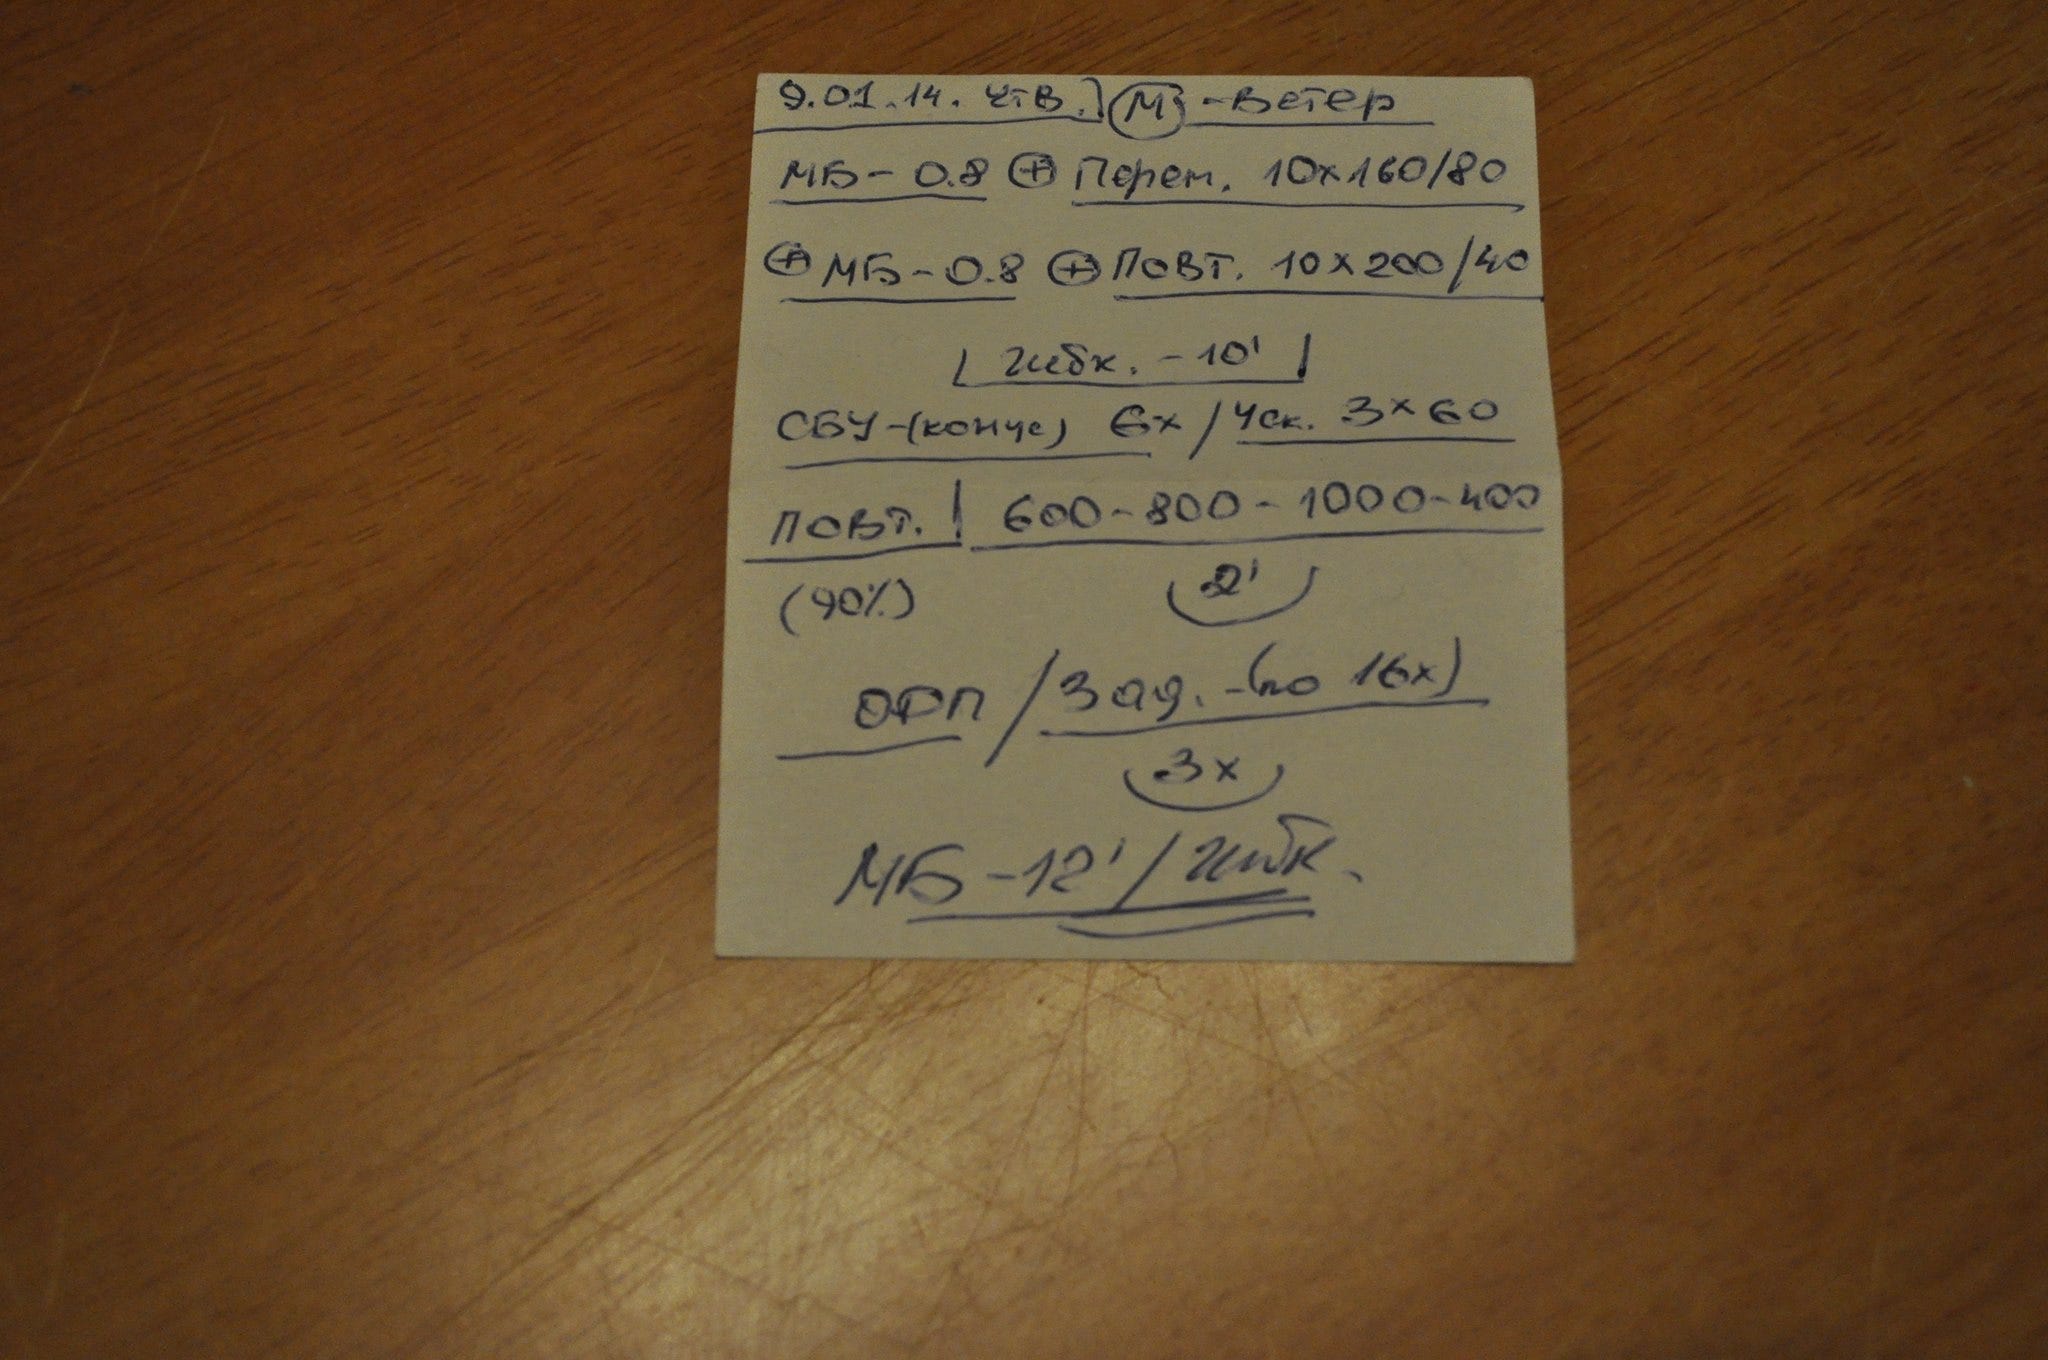 9.01.14. Чтв.] М -Ветер
МБ- 0.8 ⊕ Перем. 10х160/80
⊕ МБ-0.8 ⊕ ПОВТ. 10х200/40
| Гибк. -10' |
СБУ-(конус) 6х / Уск. 3х60
ПОВТ. | 600-800-1000-400
(90%) 2'
ОФП / Зад. -(по 16х)
3х
МБ-12' / Гибк.